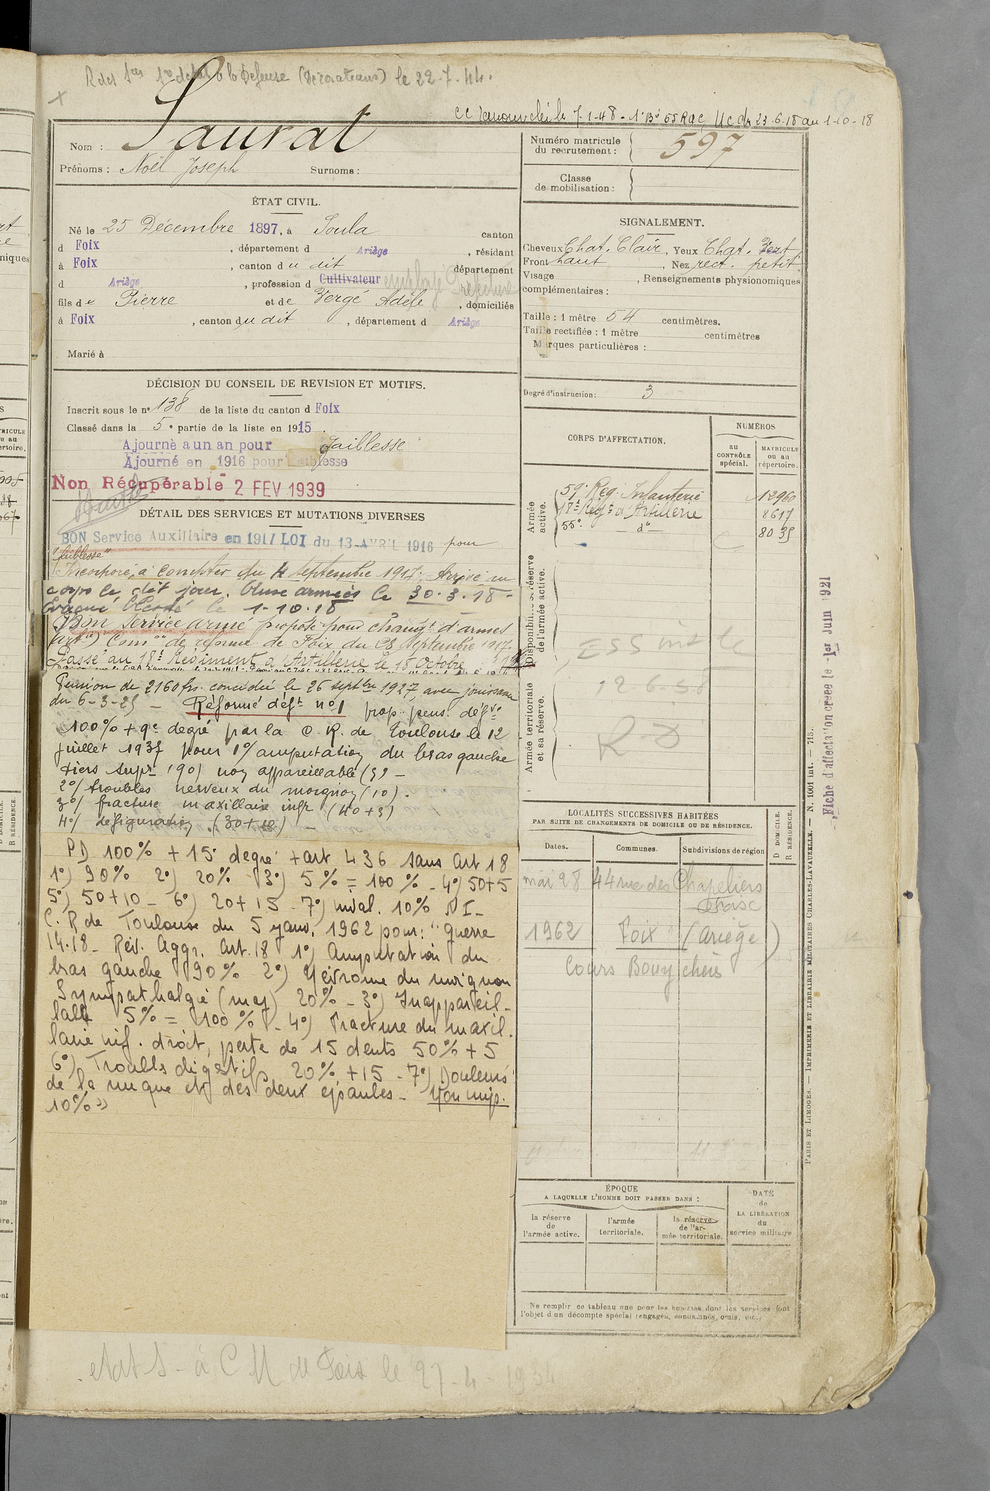 le 22-7-44.
le 7-1-48 - 23-6-18 au 1-10-18
Nom : Saurat
Prénoms : Noël Joseph Surnoms :
Numéro matricule du recrutement : 597
Classe de mobilisation :
ÉTAT CIVIL.
Né le 25 Décembre 1897, à Soula canton
d Foix , département d Ariège , résidant
à Foix , canton du dit département
d Ariège , profession d Cultivateur
fils de Pierre et de Vergé Adèle , domiciliés
à Foix , canton du dit , département d Ariège
Marié à
SIGNALEMENT.
Cheveux Chat. Clair, Yeux Chat. Vert
Front haut , Nez rect. petit
Visage , Renseignements physionomiques
complémentaires :
Taille : 1 mètre 54 centimètres.
Taille rectifiée : 1 mètre centimètres
Marques particulières :
Degré d'instruction : 3
DÉCISION DU CONSEIL DE REVISION ET MOTIFS.
Inscrit sous le n° 138 de la liste du canton d Foix
Classé dans la 5e partie de la liste en 1915.
Ajourné a un an pour faiblesse
Ajourné en 1916 pour faiblesse
Non Récupérable 2 FEV 1939
DÉTAIL DES SERVICES ET MUTATIONS DIVERSES
BON Service Auxiliaire en 1917 LOI du 13 AVRIL 1916 pour
"faiblesse"
Incorporé à compter du 4 septembre 1917. Arrivé au
corps le dit jour. Blessé armées le 30.3.18-
Evacué blessé le 1-10-18
Bon service armé proposé pour changt d'armes
(art.) Comon de réforme de Foix du 28 septembre 1917.
Passé au 18e Régiment d'Artillerie le 15 Octobre
Pension de 2160 frs. concédée le 26 septbre 1927, avec jouissance
du 6-3-25 - Réformé déft n°1 prop. pens. défve
100% + 9e degré par la C. R. de Toulouse le 12
juillet 1935 pour 1°/ amputation du bras gauche
tiers supr (90) non appareillable (5) -
2°/ troubles nerveux du moignon (10).
3°/ fracture maxillaire infr (40+5)
4°/ défiguration (30+10)
PD 100% + 15° degré + art 436 sans art 18
1°) 90% 2°) 20% 3°) 5% = 100% - 4°) 50+5
5°) 50+10 - 6°) 20+15 - 7°) inval. 10% NI -
C. R de Toulouse du 5 janv. 1962 pour : "guerre
14.18 - Rév. Aggr. Art. 18 1°) Amputation du
bras gauche 90% 2°) Névrome du moignon
Sympathalgie (maj) 20% - 3°) Inappareil-
lable 5% = 100% - 4°) Fracture du maxil.
laire inf. droit, perte de 15 dents 50% + 5
6°) Troubles digestifs 20% + 15 - 7°) Douleurs
de la nuque et des deux épaules - Non imp.
10% »
CORPS D'AFFECTATION.
NUMÉROS
au CONTRÔLE spécial.
MATRICULE ou au répertoire.
Armée active.
59e Rég. Infanterie 12960
18e Regt d'Artillerie 8617
55e do 8035
Disponibilité et réserve de l'armée active.
12-6-58
Armée territoriale et sa réserve.
LOCALITÉS SUCCESSIVES HABITÉES
PAR SUITE DE CHANGEMENTS DE DOMICILE OU DE RÉSIDENCE.
Dates. Communes. Subdivisions de région
D DOMICILE.
R RÉSIDENCE.
mai 28 44 rue des Chapeliers
Foix
1962 Foix (Ariège)
Cours Bouychères
ÉPOQUE
A LAQUELLE L'HOMME DOIT PASSER DANS :
la réserve de l'armée active.
l'armée territoriale.
la réserve de l'armée territoriale.
DATE de LA LIBÉRATION du service militaire
Ne remplir ce tableau que pour les hommes dont les services font
l'objet d'un décompte spécial (engagés, condamnés, omis, etc.)
PARIS ET LIMOGES. — IMPRIMERIE ET LIBRAIRIE MILITAIRES CHARLES-LAVAUZELLE. — N. 1001 int. — 715.
Fiche d'affectation créée le 1er Juin 1921
le 27-4-1934